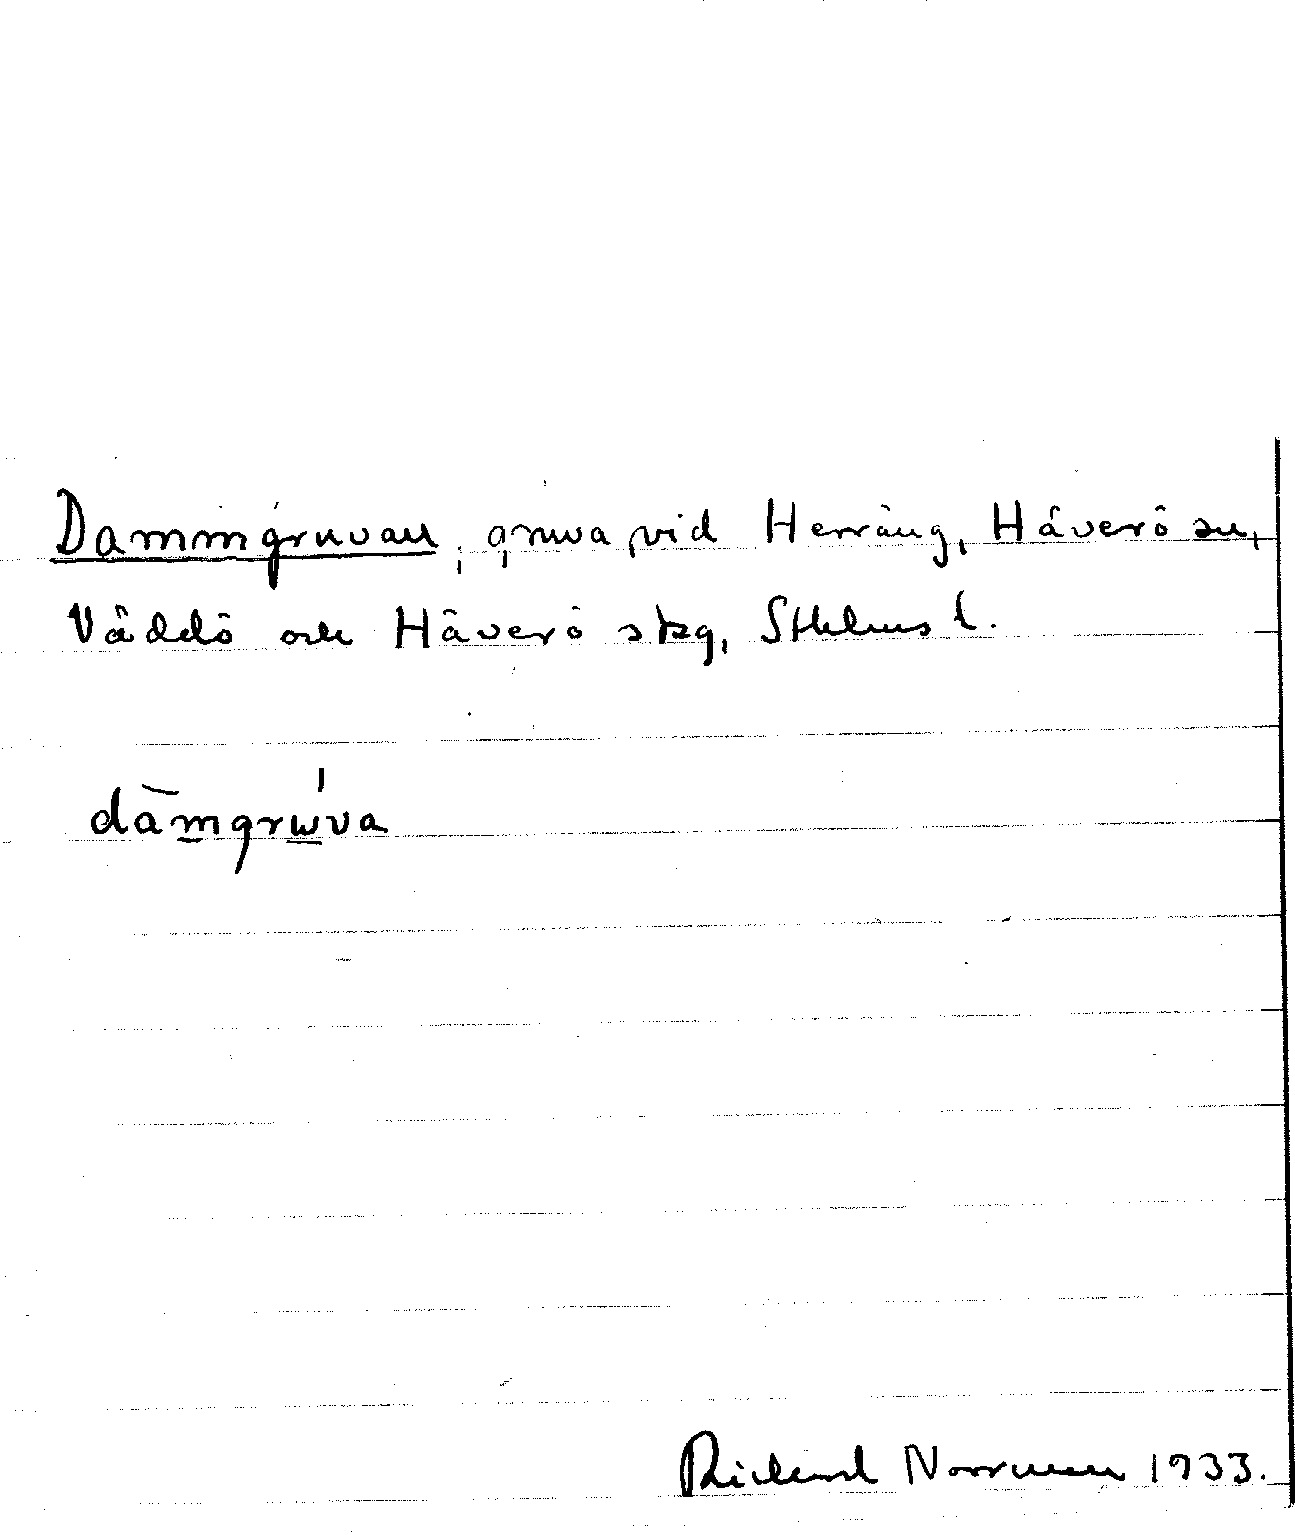 Dammgruvan, gruva vid Herräng, Häverö sn,
Väddö och Häverö skg, Sthlms l.
dàm̲grɯ̲́va
Rickard Norrman 1933.